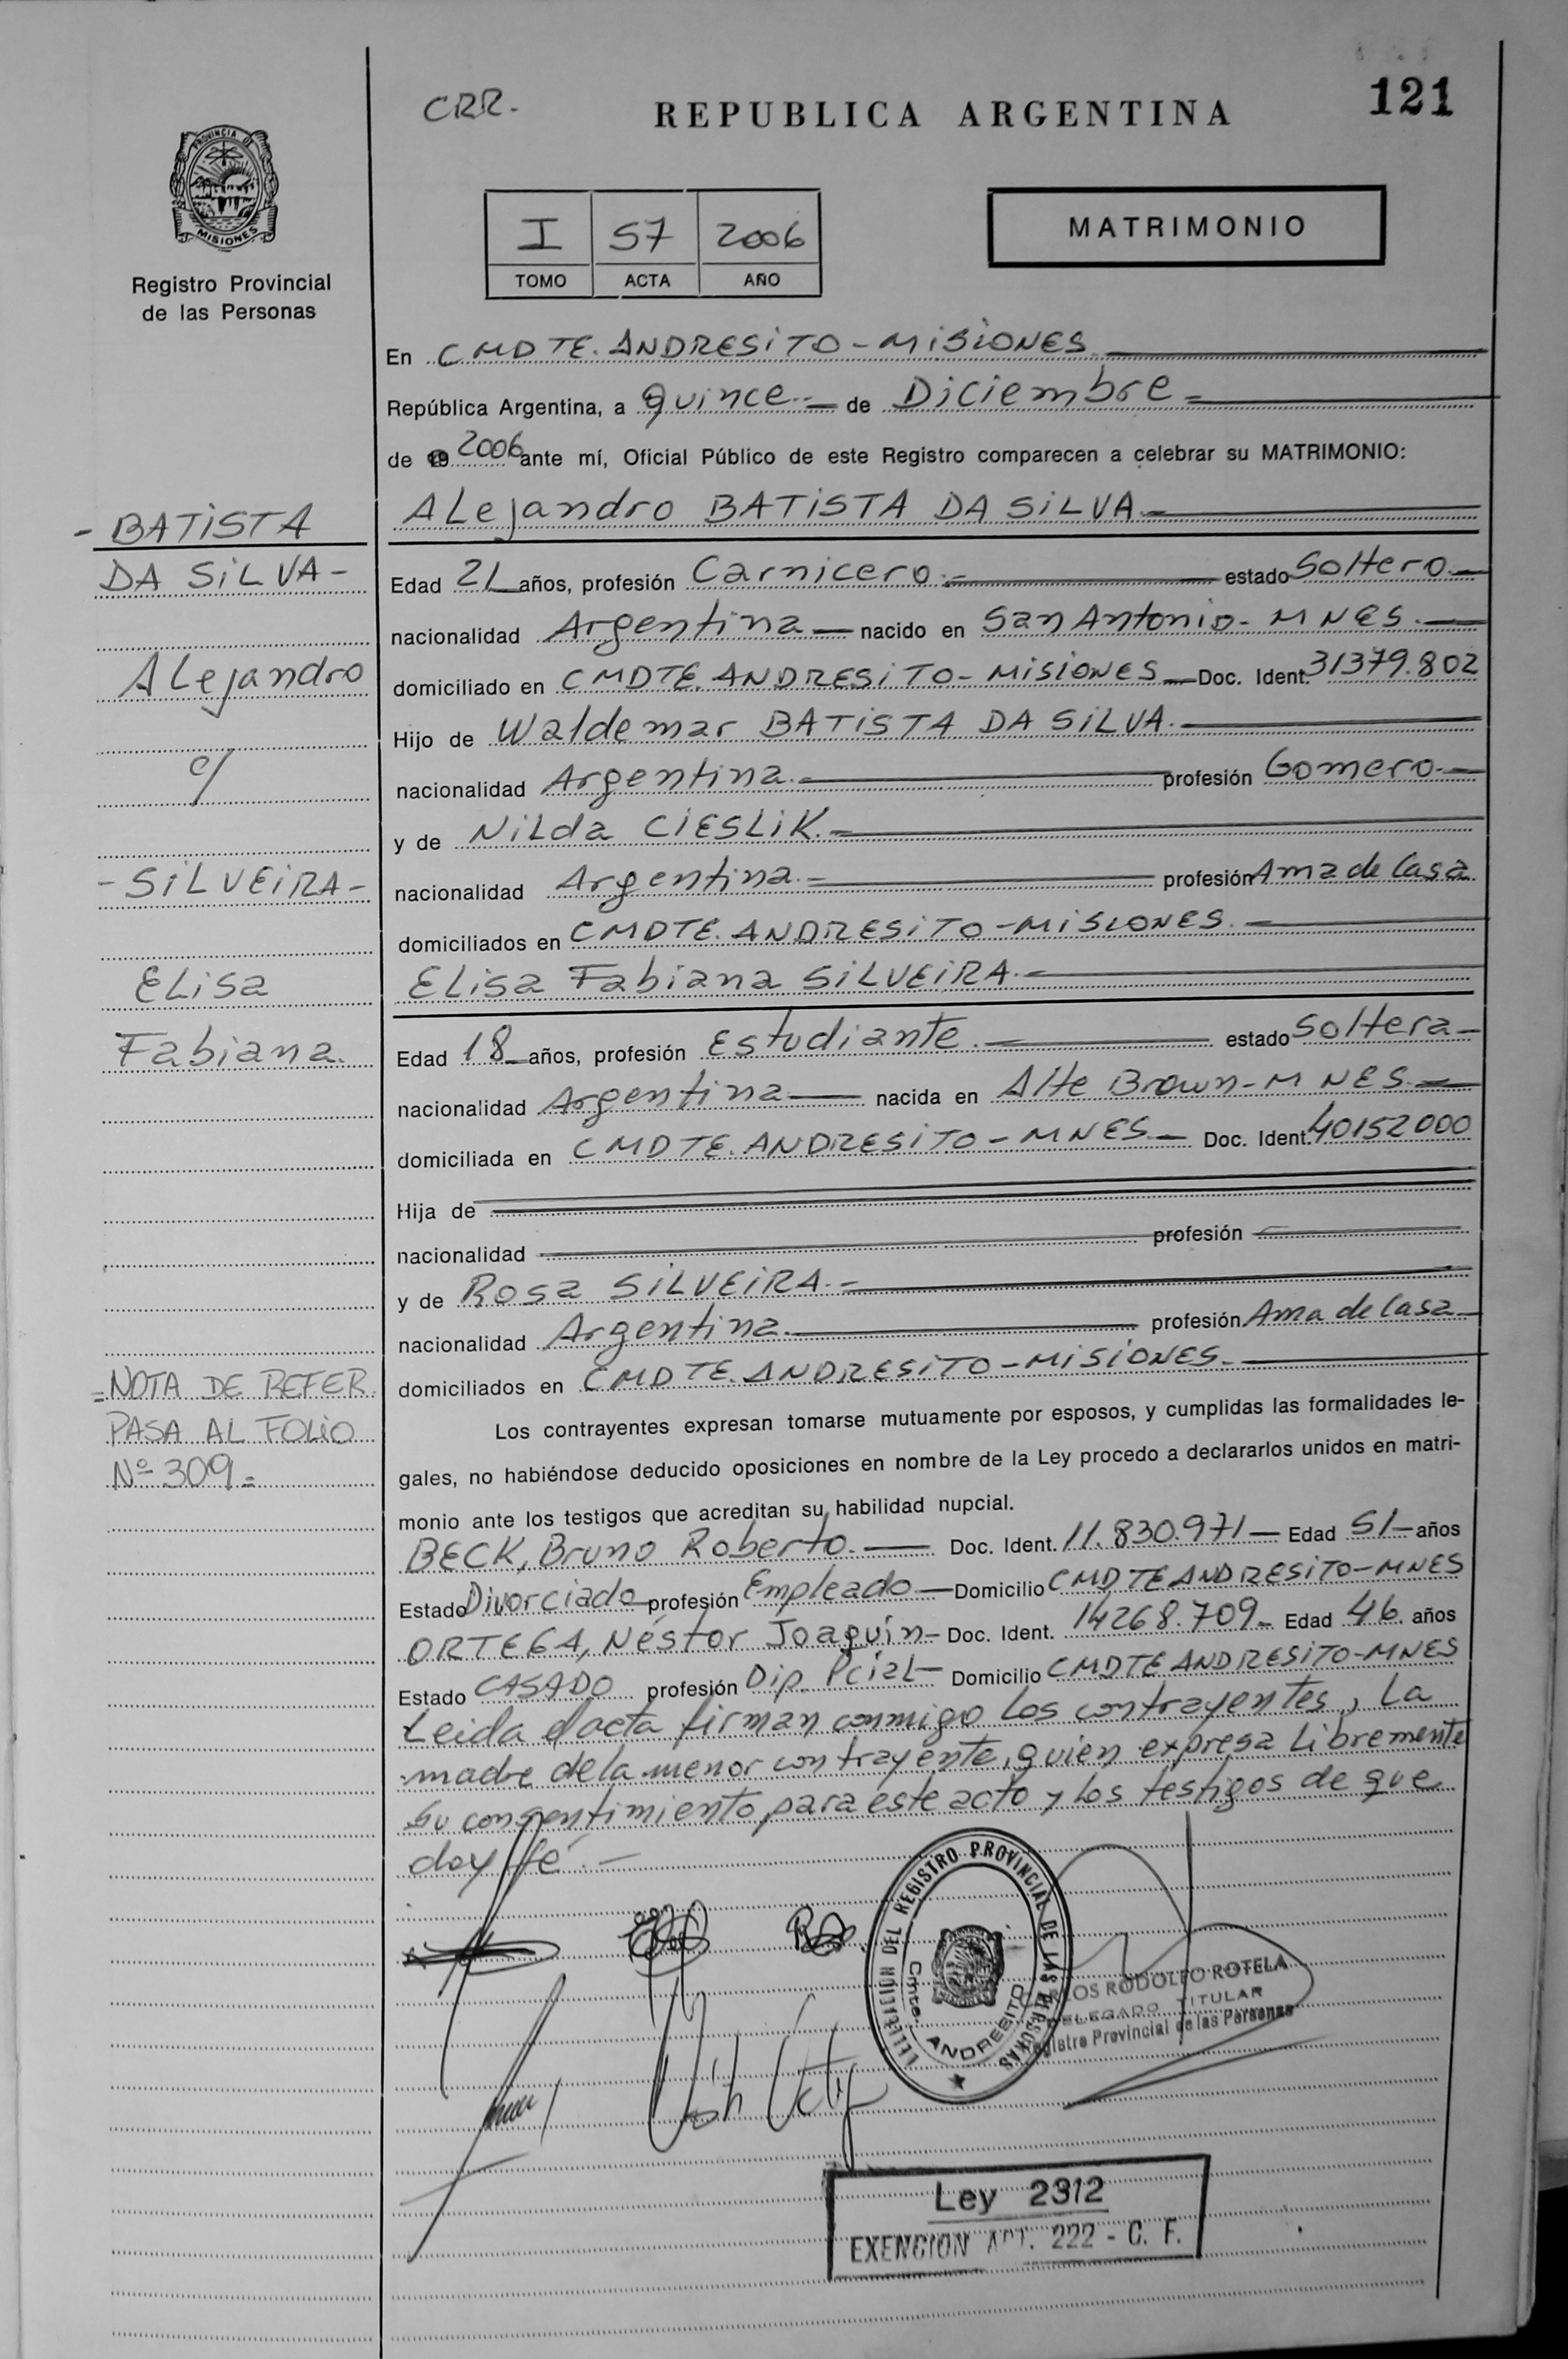 CRR.-
REPUBLICA ARGENTINA
121
PROVINCIA DE
MISIONES
Registro Provincial
de las Personas
I 57 2006
TOMO ACTA AÑO
MATRIMONIO
En CMDTE. ANDRESITO - MISIONES
República Argentina, a quince.- de Diciembre
de 19 2006 ante mí, Oficial Público de este Registro comparecen a celebrar su MATRIMONIO:
- BATISTA
DA SILVA -
Alejandro
c/
- SILVEIRA -
Elisa
Fabiana.
Alejandro BATISTA DA SILVA.-
Edad 21 años, profesión Carnicero.- estado Soltero.-
nacionalidad Argentina nacido en San Antonio - MNES.
domiciliado en CMDTE. ANDRESITO - MISIONES Doc. Ident. 31379.802
Hijo de Waldemar BATISTA DA SILVA.
nacionalidad Argentina.- profesión Gomero.-
y de Nilda CIESLIK.-
nacionalidad Argentina.- profesión Ama de Casa
domiciliados en CMDTE. ANDRESITO - MISIONES.
Elisa Fabiana SILVEIRA.-
Edad 18 años, profesión Estudiante. estado Soltera
nacionalidad Argentina nacida en Alte Brown - MNES.
domiciliada en CMDTE. ANDRESITO - MNES. Doc. Ident. 40152000
Hija de
nacionalidad profesión
y de Rosa SILVEIRA.-
nacionalidad Argentina. profesión Ama de Casa
domiciliados en CMDTE. ANDRESITO - MISIONES.
= NOTA DE REFER.
PASA AL FOLIO
Nº 309.-
Los contrayentes expresan tomarse mutuamente por esposos, y cumplidas las formalidades le-
gales, no habiéndose deducido oposiciones en nombre de la Ley procedo a declararlos unidos en matri-
monio ante los testigos que acreditan su habilidad nupcial.
BECK, Bruno Roberto. Doc. Ident. 11.830.971 Edad 51 años
Estado Divorciado profesión Empleado Domicilio CMDTE ANDRESITO - MNES
ORTEGA, Néstor Joaquín - Doc. Ident. 14268.709 Edad 46. años
Estado CASADO profesión Dip. Pcial Domicilio CMDTE ANDRESITO - MNES
Leida el acta firman conmigo los contrayentes, la
madre de la menor contrayente, quien expresa libremente
su consentimiento para este acto y los testigos de que
doy fé.-
DELEGACION DEL REGISTRO PROVINCIAL DE LAS PERSONAS
Cmte. ANDRESITO
CARLOS RODOLFO ROTELA
DELEGADO TITULAR
Registro Provincial de las Personas
Ley 2312
EXENCION ART. 222 - C. F.